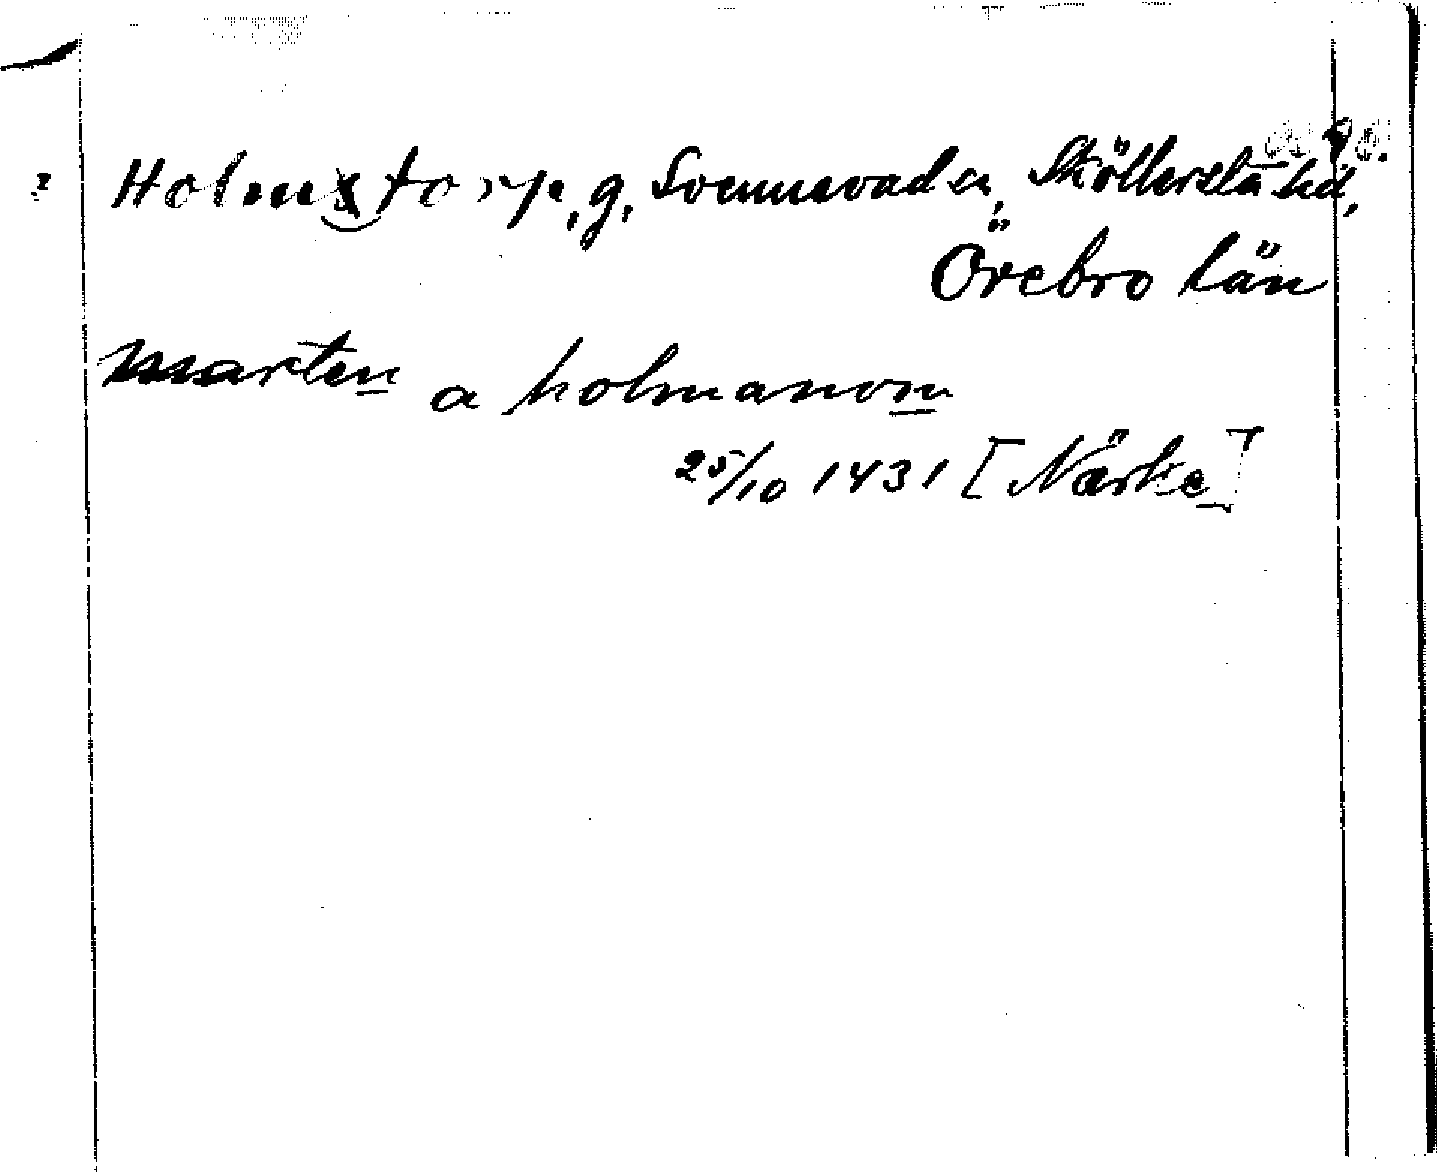 Holmstorp, g, Svennevad sn, Sköllersta hd,
Örebro län
marten a holmanom
25/10 1431 [Närke]